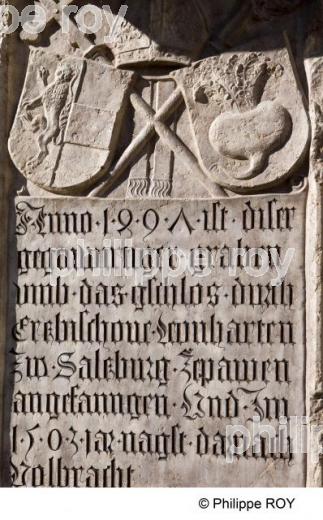 Anno · 1497 · ist · diser
graben
vmb · das · gslos · durch
Ertzbischoue · Leonharten
Zw · Salzburg · Zepawen
angefanngen · Vnd · Im
1503 iar · nagst · darnach
Volbracht
© Philippe ROY